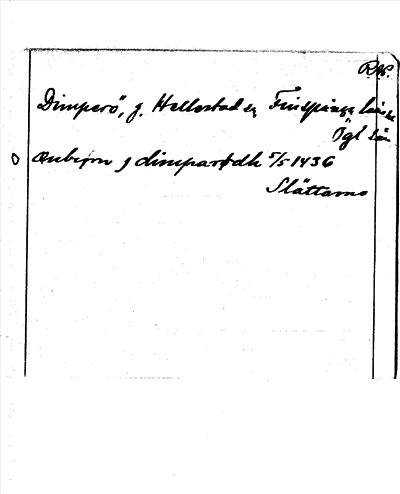 RAP.
Dimperö, g. Hellestad sn Finspånga läns hd
Ögl län
Ænbiorn j dimparødh 5/5 1436
Slättamo